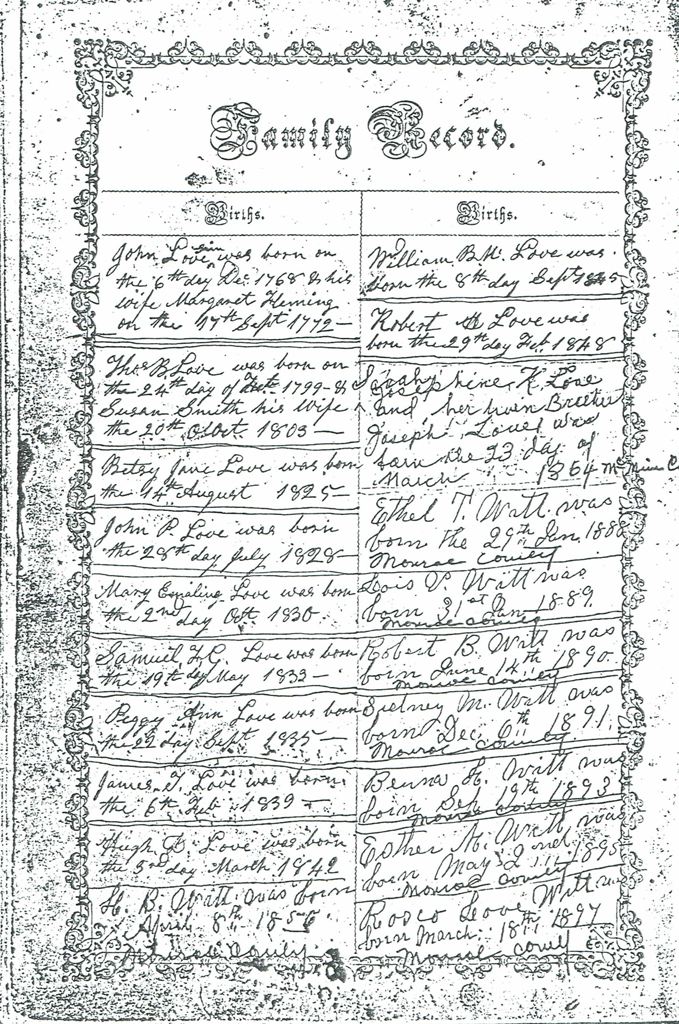 Family Record.
Births.
John Love sen was born on
the 6th day Dec. 1768 & his
wife Margaret Fleming
on the 17th Sept 1772—
Thos B. Love was born on
the 24th day of 1799 &
Susan Smith his Wife
the 20th Oct 1803—
Betsy Jane Love was born
the 14th August 1825—
John P. Love was born
the 28th day July 1828—
Mary Emaline Love was born
the 2nd day Octr. 1830—
Samuel Love was born
the 19th day May 1833—
Peggy Ann Love was born
the 22 day Sept 1835—
James T. Love was born
the 6th Feb 1839—
Hugh Love was born
the day March 1842
H. B. Witt was born
April 8th
Monroe County
Births.
William B. Mc. Love was
born the 8th day Sept
Robert A Love was
born the 29th day Feb. 1848
Josephine K. Love
and her twin
Joseph Love was
born the 23 day of
March 1864
Ethel T. Witt was
born the 29th Jan.
Monroe County
Lois V. Witt was
born 31st Jan 1889.
Monroe County
Robert B. Witt was
born June 14th 1890.
Monroe County
Sydney M. Witt was
born Dec. 6th 1891.
Monroe County
H. Witt was
born Sep 19th 1893
Monroe County
Esther M. Witt was
born May 2nd 1895
Monroe County
Rosco Love Witt
born March. 18th 1897
Monroe County